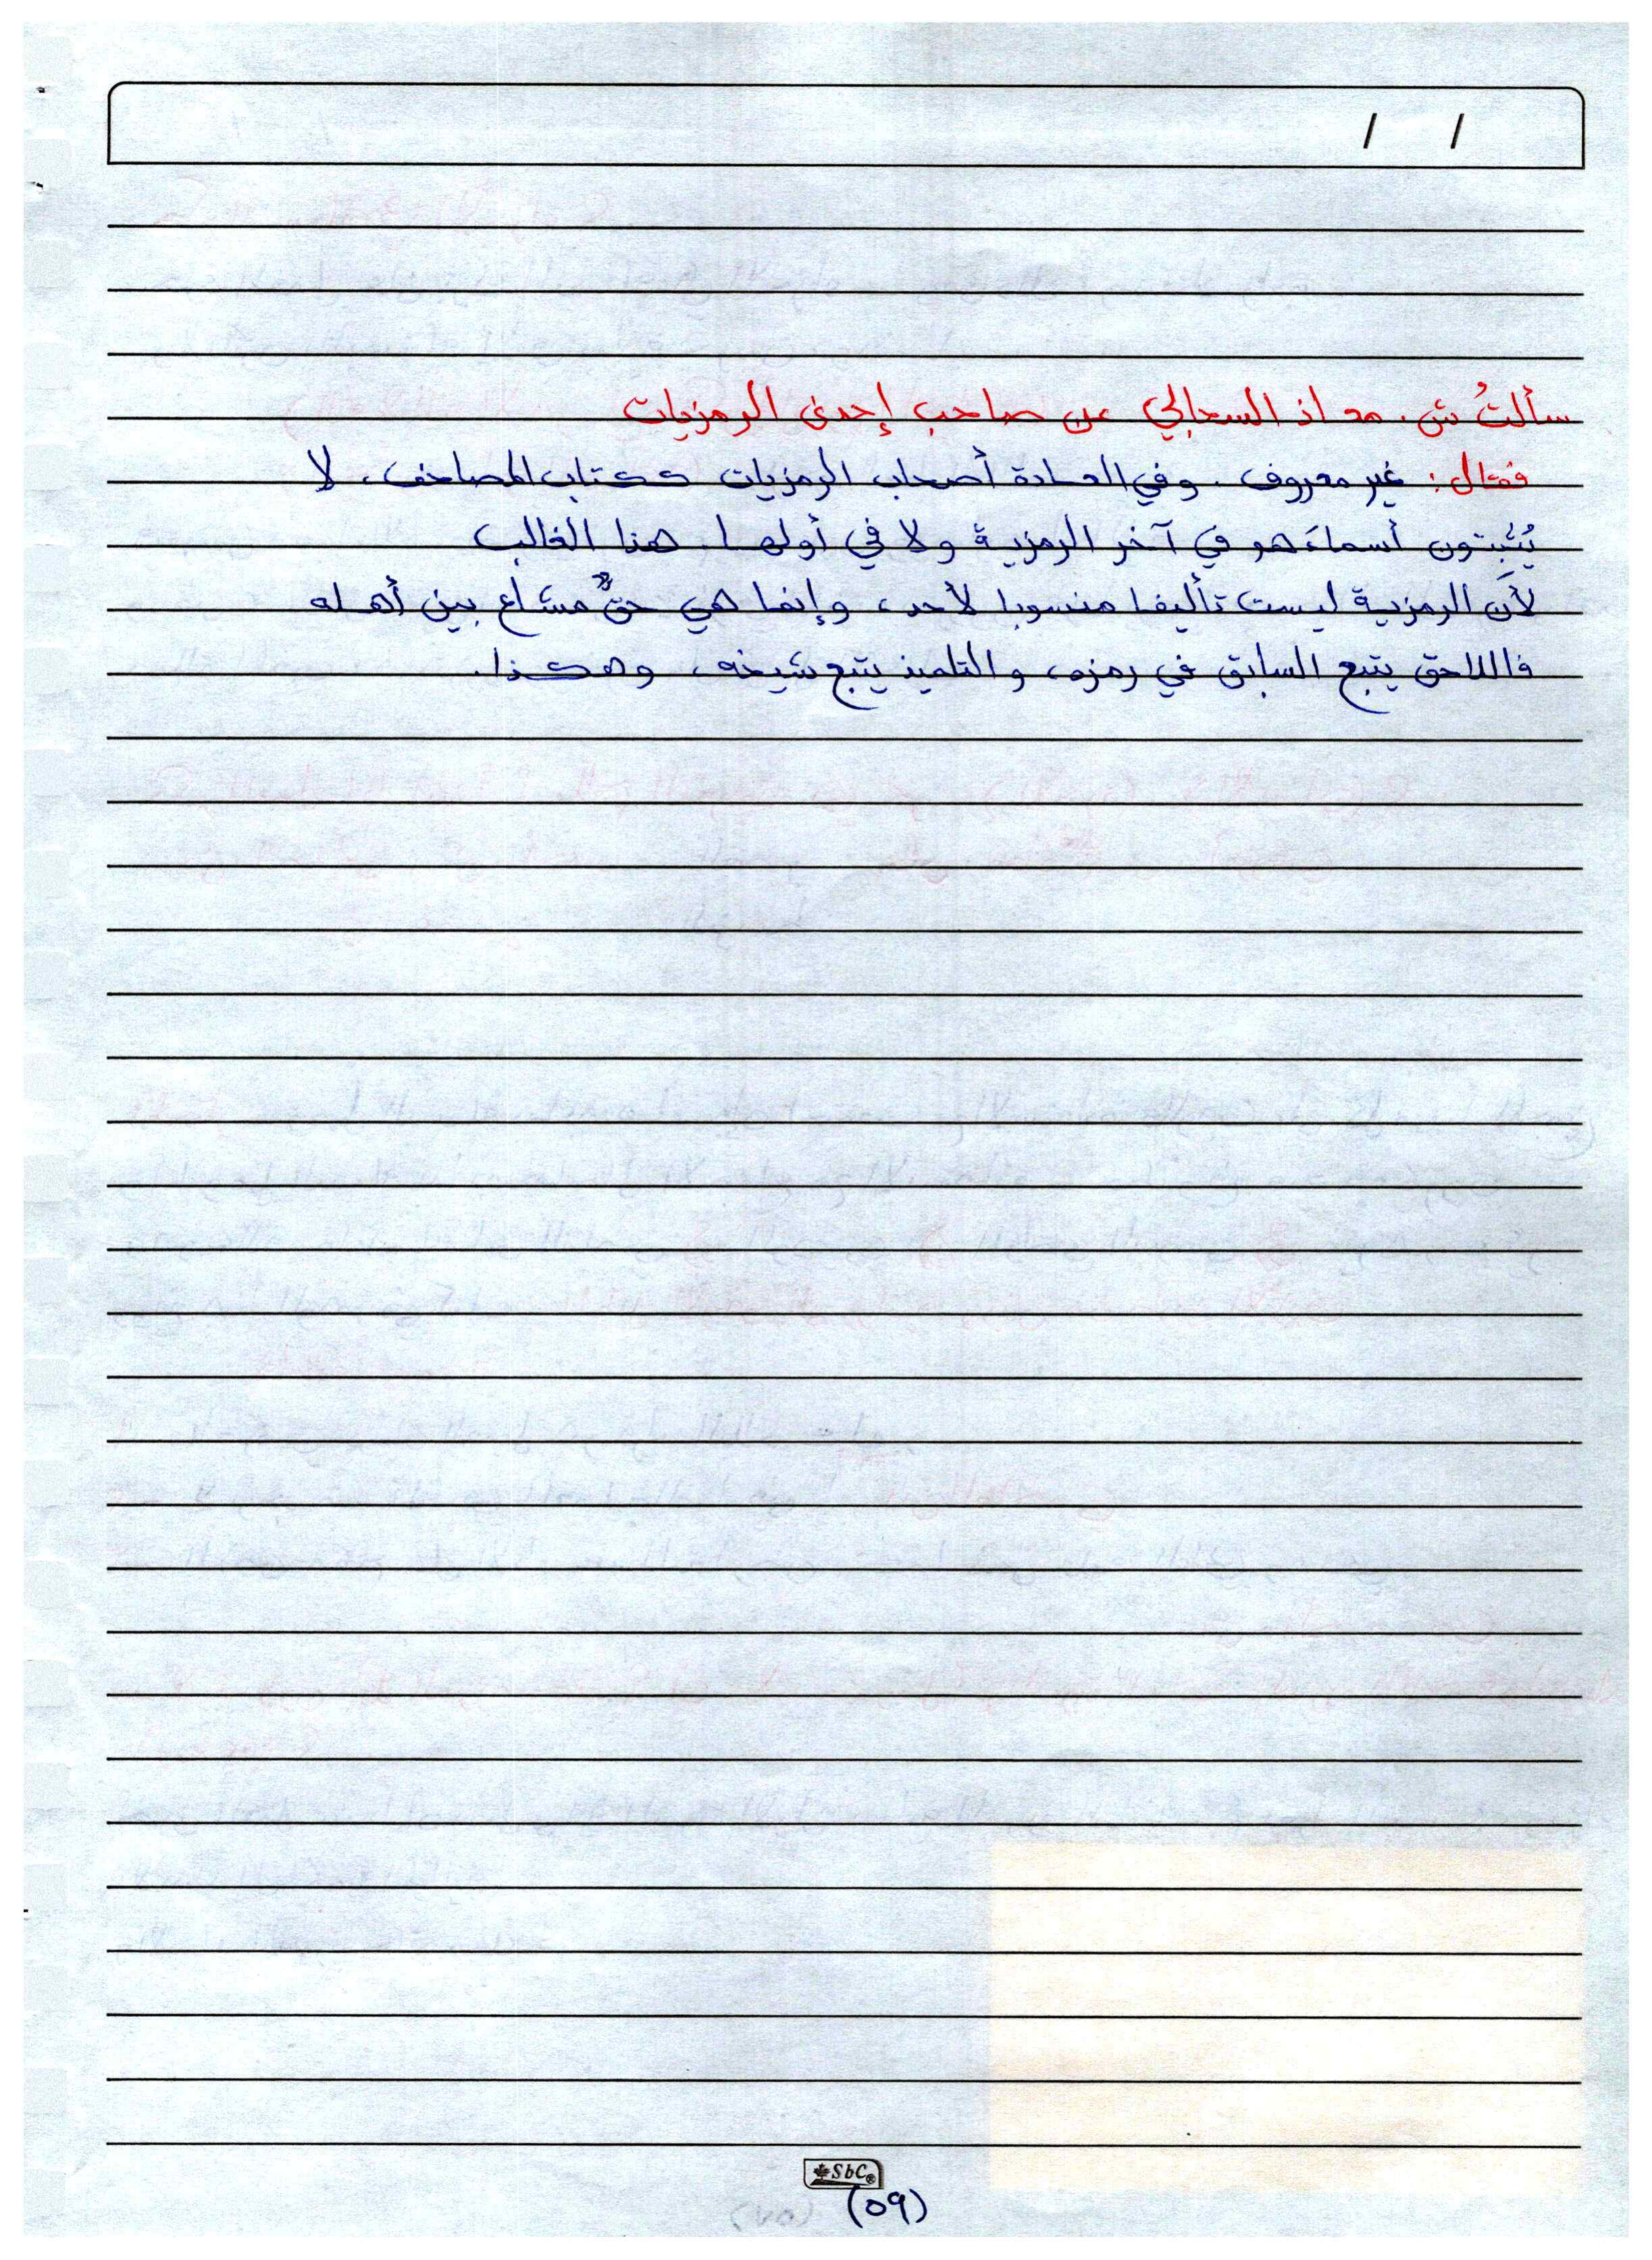 / /
سألتُ ش. معاذ السحابي عن صاحب إحدى الرمزيات
فقال: غير معروف. وفي العادة أصحاب الرمزيات ككتاب المصاحف، لا
يُثبتون أسماءَهم في آخر الرمزية ولا في أولها. هذا الغالب
لأن الرمزية ليست تأليفا منسوبا لأحد، وإنما هي حقٌّ مشاع بين أهله
فاللاحق يتبع السابق في رمزه، والتلميذ يتبع شيخه، وهكذا.
SbC®
(٥٩)